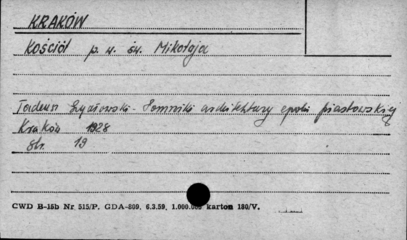 KRAKÓW
Kościół p. w. św. Mikołaja
Tadeusz Szydłowski - Pomniki architektury epoki piastowskiej
Kraków 1928
str. 19
CWD B-15b Nr 515/P. GDA-809, 6.3.59, 1.000.000 karton 180/V.